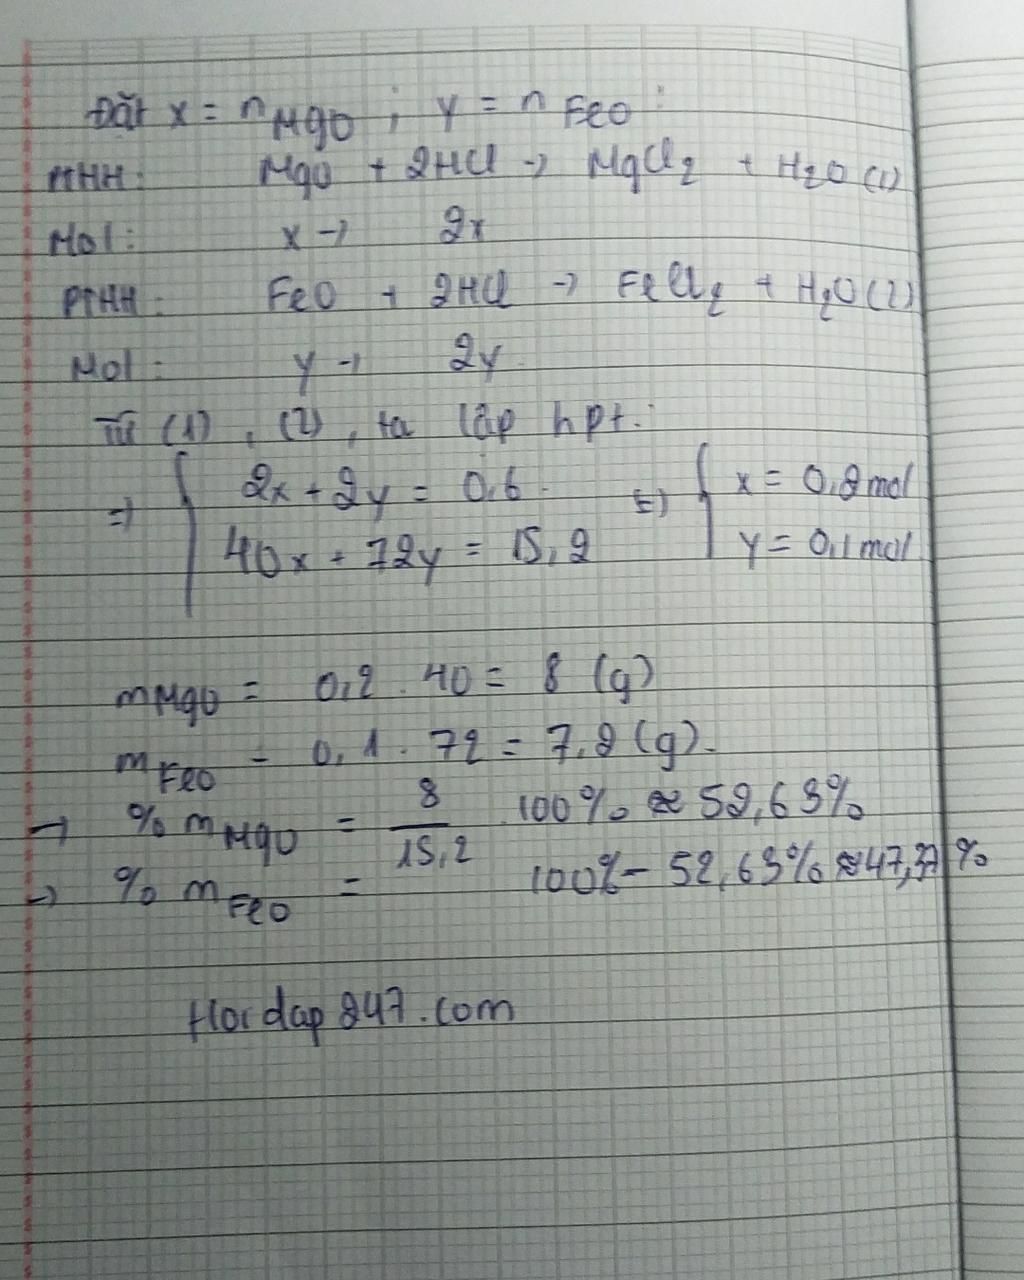 Đặt x = nMgO ; y = nFeO
PTHH: MgO + 2HCl → MgCl2 + H2O (1)
Mol: x → 2x
PTHH: FeO + 2HCl → FeCl2 + H2O (2)
Mol: y → 2y
Từ (1), (2), ta lập hpt:
⇒ { 2x + 2y = 0,6 ⇔ { x = 0,2 mol
40x + 72y = 15,2 y = 0,1 mol
mMgO = 0,2 . 40 = 8 (g)
mFeO = 0,1 . 72 = 7,2 (g).
→ %mMgO = 8/15,2 . 100% ≈ 52,63%
→ %mFeO = 100% - 52,63% ≈ 47,37%
Hoidap247.com